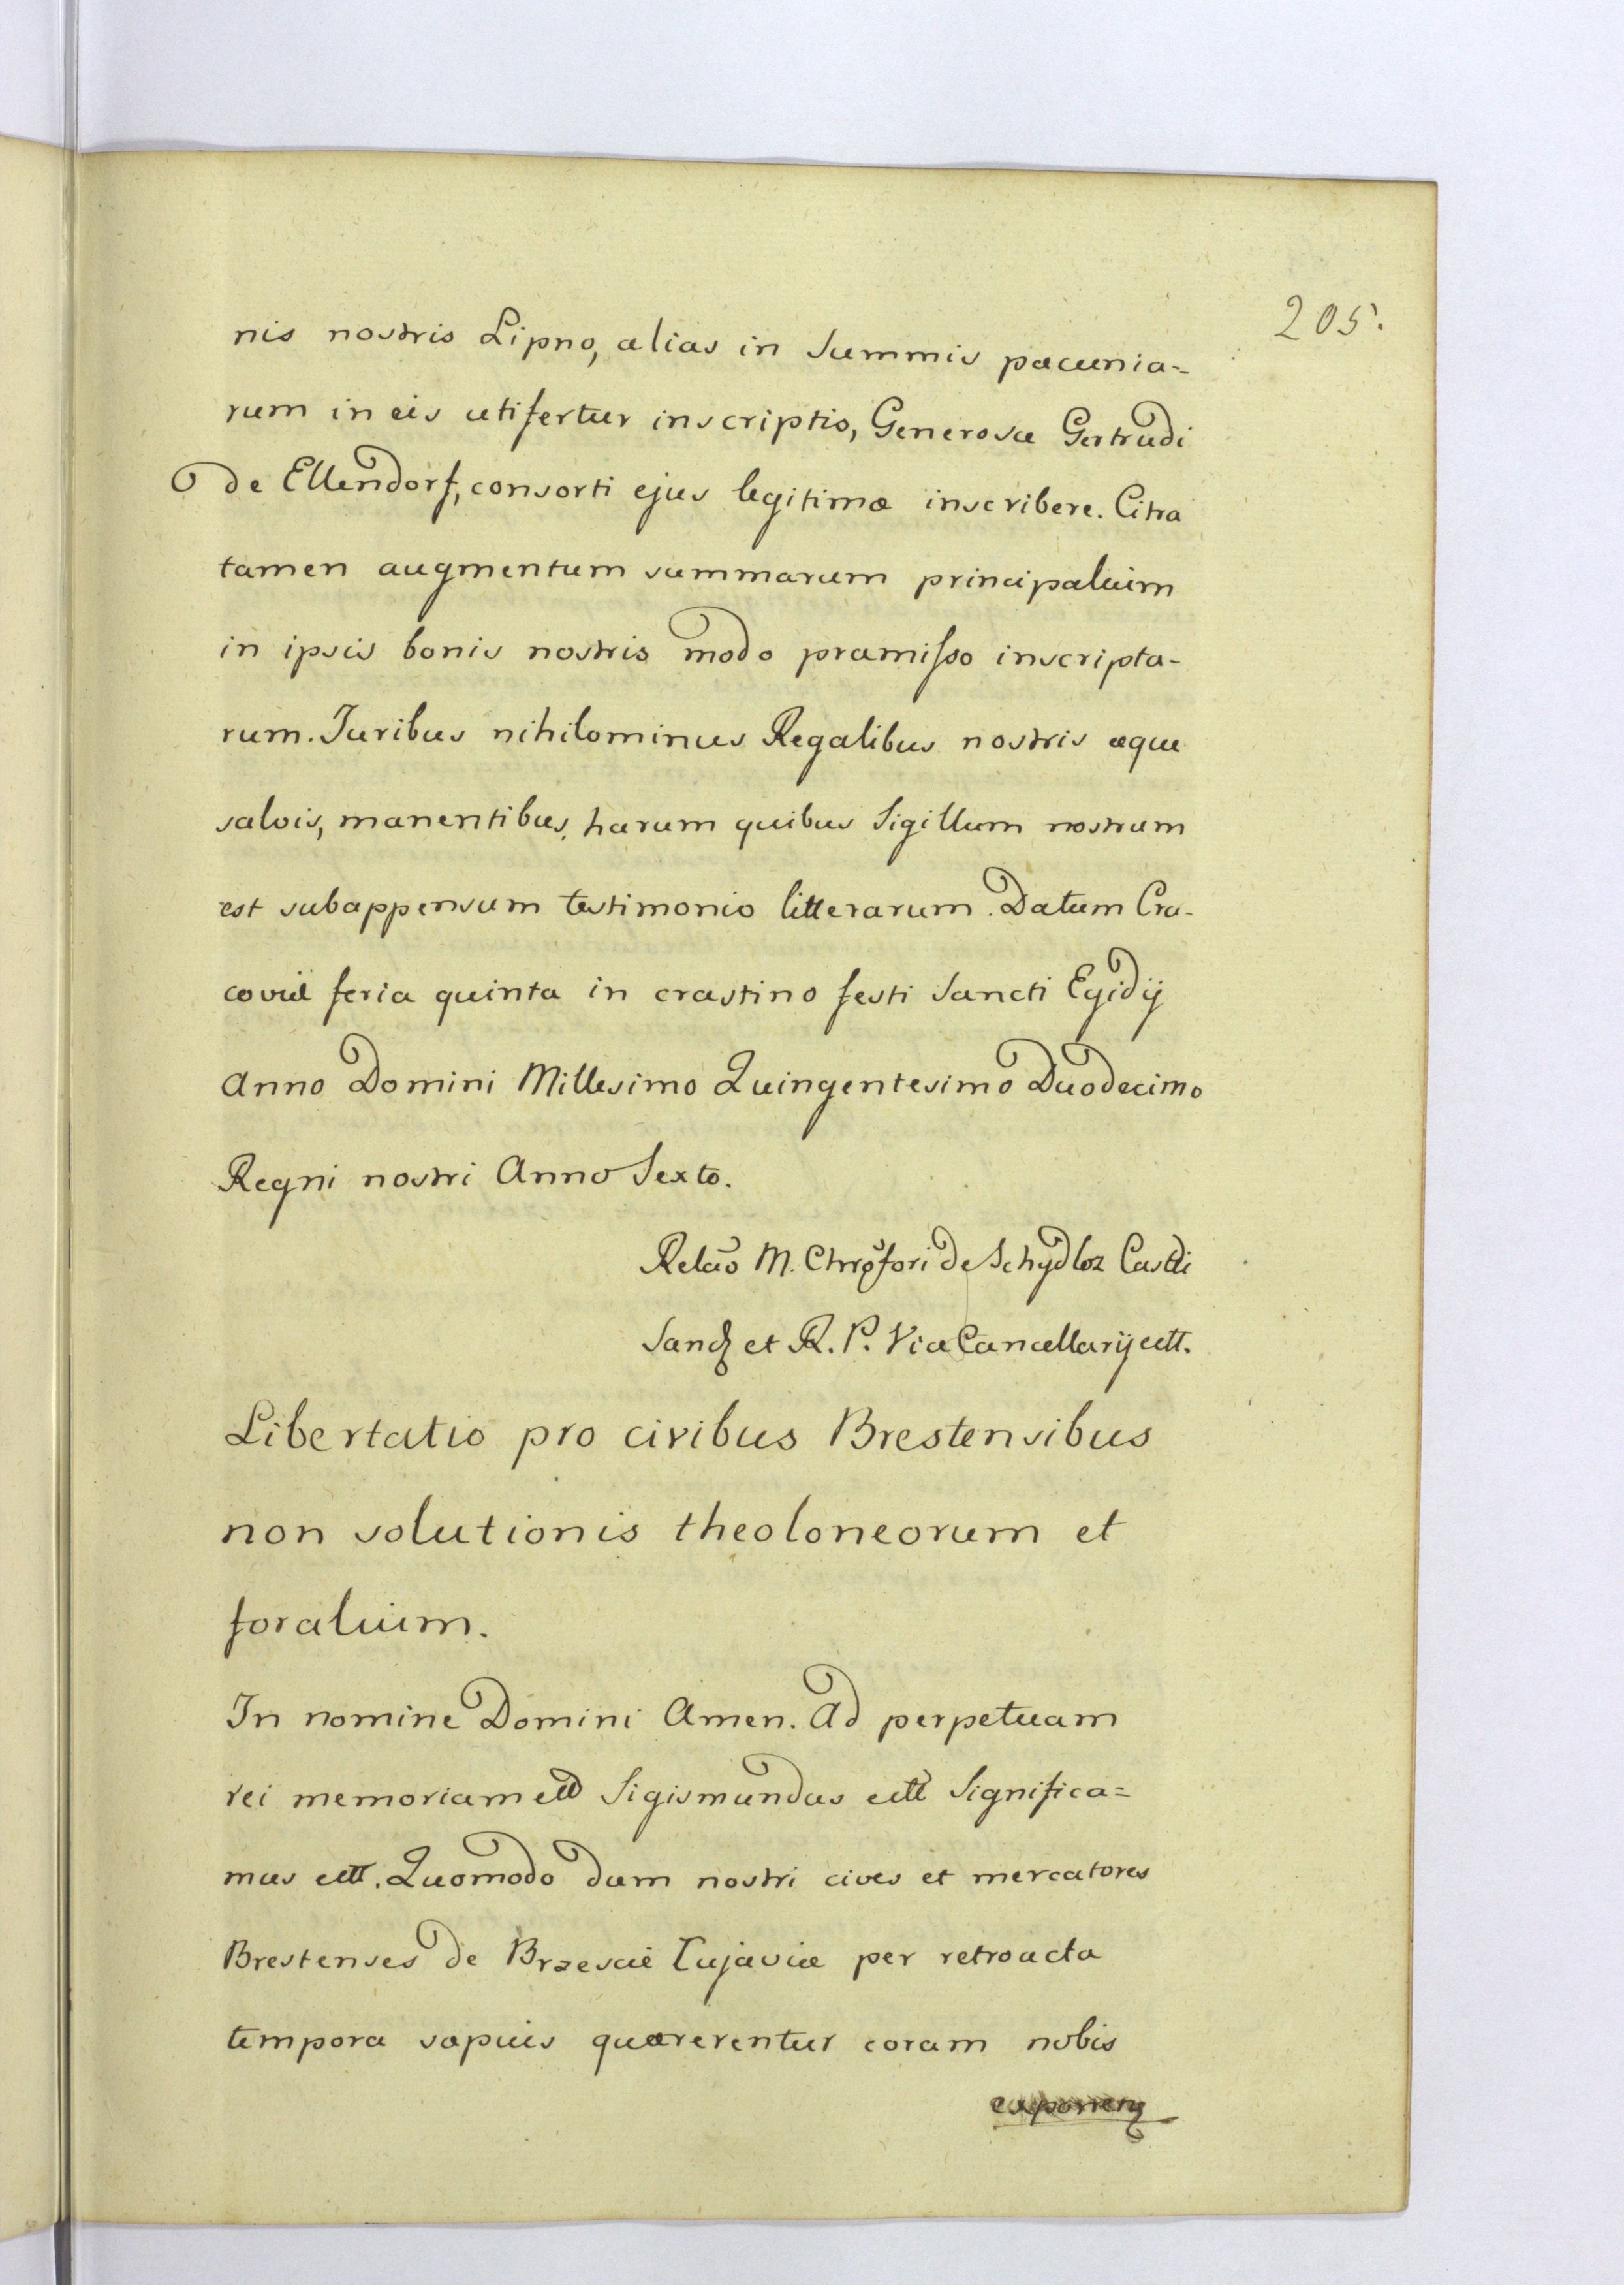 205.
nis nostris Lipno, alias in Summis pæcunia=
rum in eis uti fertur inscriptis, Generosæ Gertrudi
de Ellendorf, consorti ejus legitimæ inscribere. Citra
tamen augmentum summarum principalium
in ipsis bonis nostris modo præmisso inscripta-
rum. Juribus nihilominus Regalibus nostris æque
salvis, manentibus, harum quibus Sigillum nostrum
est subappensum testimonio litterarum. Datum Cra-
coviæ feria quinta in crastino festi Sancti Egidij
Anno Domini Millesimo Quingentesimo Duodecimo
Regni nostri Anno Sexto.
Relão M. Chrõfori de Schydloz Castli
Sandz et R. P. Vice Cancellarij ett.
Libertatio pro civibus Brestensibus
non solutionis theoloneorum et
foralium.
In nomine Domini Amen. Ad perpetuam
rei memoriam ett Sigismundus ett Significa=
mus ett. Quomodo dum nostri cives et mercatores
Brestenses de Brzesciæ Cujaviæ per retroacta
tempora sæpius quærerentur coram nobis